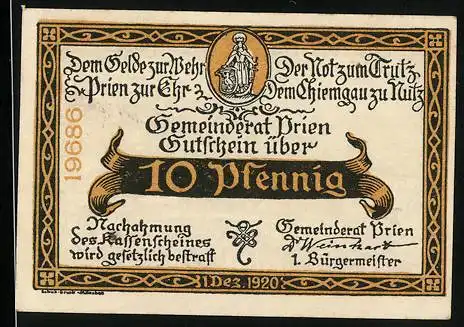 Dem Gelde zur Wehr Der Not zum Trutz
Prien zur Ehr Dem Chiemgau zu Nutz
19686
Gemeinderat Prien
Gutschein über
10 Pfennig
Nachahmung
des Kassenscheines
wird gesetzlich bestraft
Gemeinderat Prien
1. Bürgermeister
1 Dez. 1920